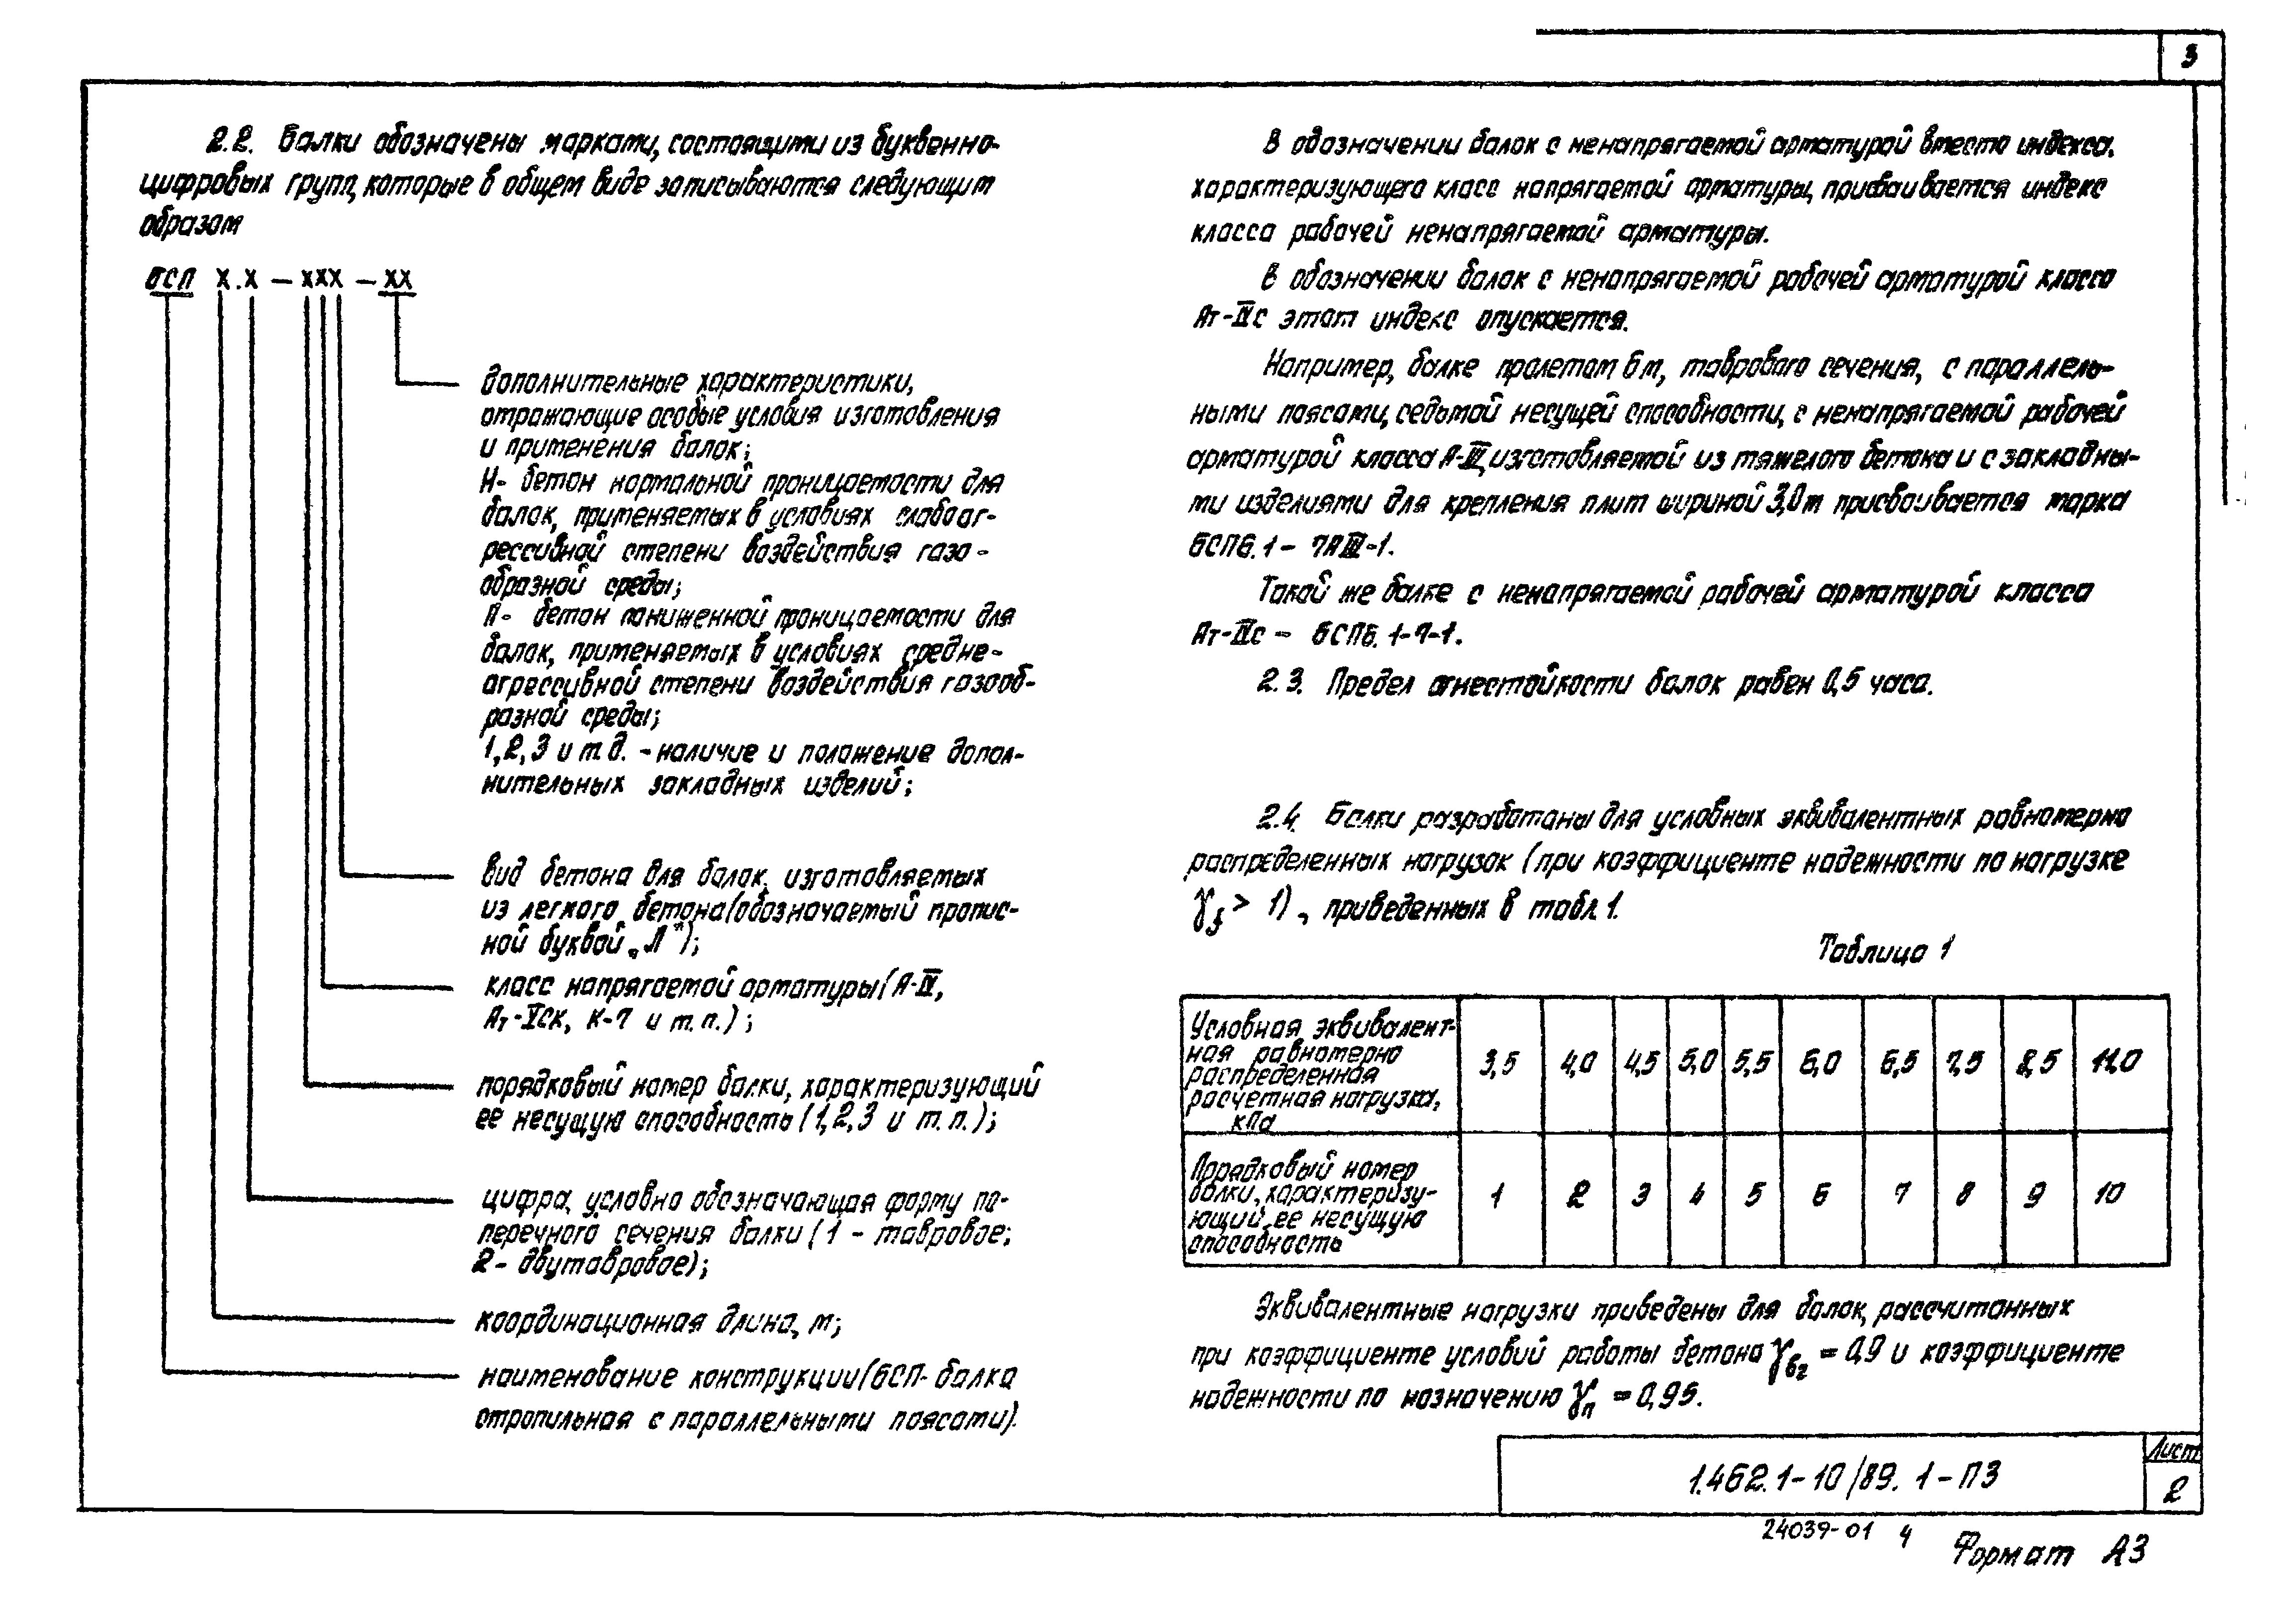 3
2.2. Балки обозначены марками, состоящими из буквенно-
цифровых групп, которые в общем виде записываются следующим
образом
БСП Х.Х – ХХХ – ХХ
дополнительные характеристики,
отражающие особые условия изготовления
и применения балок;
Н- бетон нормальной проницаемости для
балок, применяемых в условиях слабоаг-
рессивной степени воздействия газо-
образной среды;
П- бетон пониженной проницаемости для
балок, применяемых в условиях средне-
агрессивной степени воздействия газооб-
разной среды;
1, 2, 3 и т.д. - наличие и положение допол-
нительных закладных изделий;
вид бетона для балок, изготовляемых
из легкого бетона (обозначаемый пропис-
ной буквой „Л");
класс напрягаемой арматуры (А-IV,
Ат-VСК, К-7 и т.п.);
порядковый номер балки, характеризующий
ее несущую способность (1, 2, 3 и т.п.);
цифра, условно обозначающая форму по-
перечного сечения балки (1 - тавровое;
2- двутавровое);
координационная длина, м;
наименование конструкции (БСП- балка
стропильная с параллельными поясами).
В обозначении балок с ненапрягаемой арматурой вместо индекса,
характеризующего класс напрягаемой арматуры, присваивается индекс
класса рабочей ненапрягаемой арматуры.
В обозначении балок с ненапрягаемой рабочей арматурой класса
Ат-IVС этот индекс опускается.
Например, балке пролетом 6м, таврового сечения, с параллель-
ными поясами, седьмой несущей способности, с ненапрягаемой рабочей
арматурой класса А-III, изготовляемой из тяжелого бетона и с закладны-
ми изделиями для крепления плит шириной 3,0м присваивается марка
БСП6.1 – 7АIII-1.
Такой же балке с ненапрягаемой рабочей арматурой класса
Ат-IVС – БСП6.1-7-1.
2.3. Предел огнестойкости балок равен 0,5 часа.
2.4. Балки разработаны для условных эквивалентных равномерно
распределенных нагрузок (при коэффициенте надежности по нагрузке
γf > 1), приведенных в табл 1.
Таблица 1
Условная эквивалент- 3,5 4,0 4,5 5,0 5,5 6,0 6,5 7,5 8,5 11,0
ная равномерно
распределенная
расчетная нагрузка,
кПа
Порядковый номер 1 2 3 4 5 6 7 8 9 10
балки, характеризу-
ющий ее несущую
способность
Эквивалентные нагрузки приведены для балок, рассчитанных
при коэффициенте условий работы бетона γб2 = 0,9 и коэффициенте
надежности по назначению γп = 0,95.
1.462.1-10/89. 1-ПЗ
Лист
2
24039-01 4
Формат А3